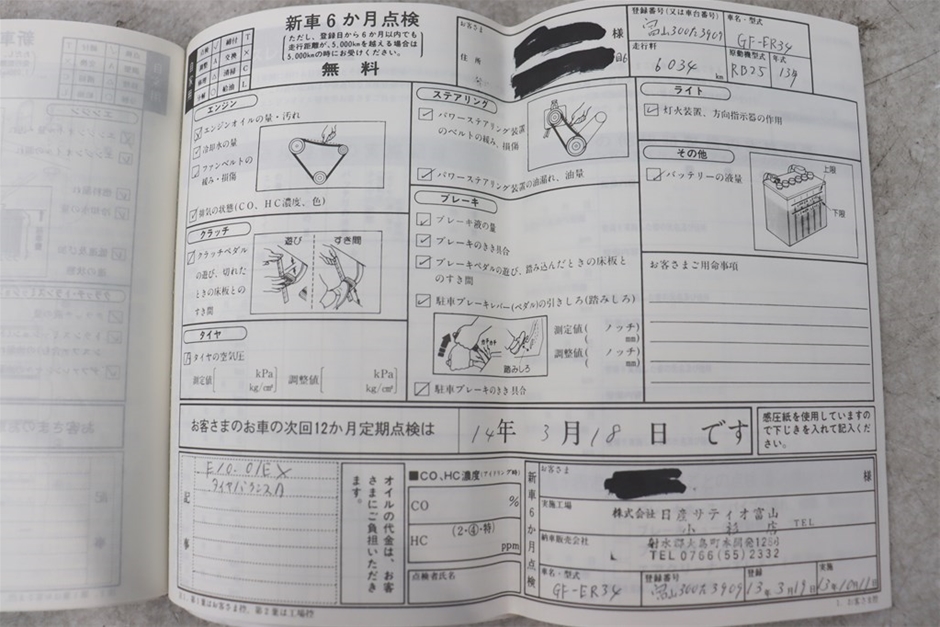 新車6か月点検
ただし、登録日から6か月以内でも
走行距離が、5,000kmを越える場合は
5,000kmの時にお受けください。
無料
点検 レ 締付 T
調整 A 交換 ×
清掃 C
分解 ○ 給油 L
お客さま
様
住所
登録番号(又は車台番号)
富山300た3909
車名・型式
GF-ER34
走行粁
6034 km
原動機型式
RB25
年式
13年
エンジン
エンジンオイルの量・汚れ
冷却水の量
ファンベルトの
緩み・損傷
排気の状態(CO、HC濃度、色)
クラッチ
クラッチペダル
の遊び、切れた
ときの床板との
すき間
遊び すき間
タイヤ
タイヤの空気圧
測定値 kPa kg/cm² 調整値 kPa kg/cm²
ステアリング
パワーステアリング装置
のベルトの緩み、損傷
パワーステアリング装置の油漏れ、油量
ブレーキ
ブレーキ液の量
ブレーキのきき具合
ブレーキペダルの遊び、踏み込んだときの床板と
のすき間
駐車ブレーキレバー(ペダル)の引きしろ(踏みしろ)
踏みしろ
測定値( ノッチ)
mm)
調整値( ノッチ)
mm)
駐車ブレーキのきき具合
ライト
灯火装置、方向指示器の作用
その他
バッテリーの液量
上限
下限
お客さまご用命事項
お客さまのお車の次回12か月定期点検は 14年 3月18日 です
感圧紙を使用していますの
で下じきを入れて記入くだ
さい。
記事
E/O. O/EX
タイヤバランスA
オイルの代金は、お客
さまにご負担いただき
ます。
■CO、HC濃度(アイドリング時)
CO %
HC (2・④・特) ppm
点検者氏名
新車6か月点検
お客さま
様
実施工場
株式会社日産サティオ富山
小杉店
TEL
新車販売会社
射水郡大島町本開発
TEL 0766(55)2332
車名・型式
GF-ER34
登録番号
富山300た3909
登録
13年3月19日
実施
13年10月11日
1. お客さま控